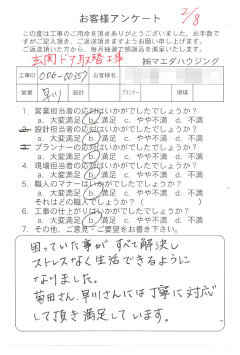 お客様アンケート
2/8
この度は工事のご用命を頂きありがとうございました。お手数で
すがご記入頂き、ご返送頂きますようお願い申し上げます。
ご返送頂いた方から、毎月抽選で感謝品を進呈いたします。
玄関ドア取替工事
㈱マエダハウジング
工事ID 006-00357 お客様名
営業 早川 設計 プランナー 現場
1. 営業担当者の応対はいかがでしたでしょうか?
a. 大変満足 b. 満足 c. やや不満 d. 不満
2. 設計担当者の応対はいかがでしたでしょうか?
a. 大変満足 b. 満足 c. やや不満 d. 不満
3. プランナーの応対はいかがでしたでしょうか?
a. 大変満足 b. 満足 c. やや不満 d. 不満
4. 現場担当者の応対はいかがでしたでしょうか?
a. 大変満足 b. 満足 c. やや不満 d. 不満
5. 職人のマナーはいかがでしたでしょうか?
a. 大変満足 b. 満足 c. やや不満 d. 不満
それはどの職人でしょうか? ( )
6. 工事の仕上がりはいかがでしたでしょうか?
a. 大変満足 b. 満足 c. やや不満 d. 不満
7. その他、ご意見・ご要望をお書き下さい。
困っていた事が すべて解決し
ストレスなく生活できるように
なりました。
菊田さん、早川さんには丁寧に対応
して頂き満足しています。